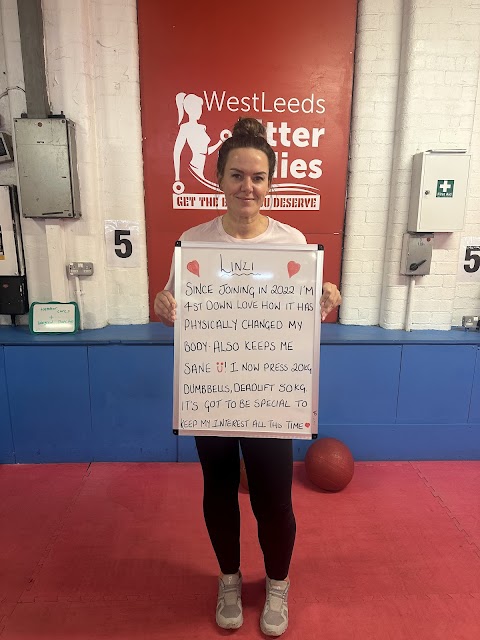 WestLeeds
Fitter
Ladies
GET THE B DESERVE
5
5
First Aid
LINZI
SINCE JOINING IN 2022 I'M
4ST DOWN LOVE HOW IT HAS
PHYSICALLY CHANGED MY
BODY. ALSO KEEPS ME
SANE ! I NOW PRESS 20KG
DUMBBELLS, DEADLIFT 50KG
IT'S GOT TO BE SPECIAL TO
KEEP MY INTEREST ALL THIS TIME